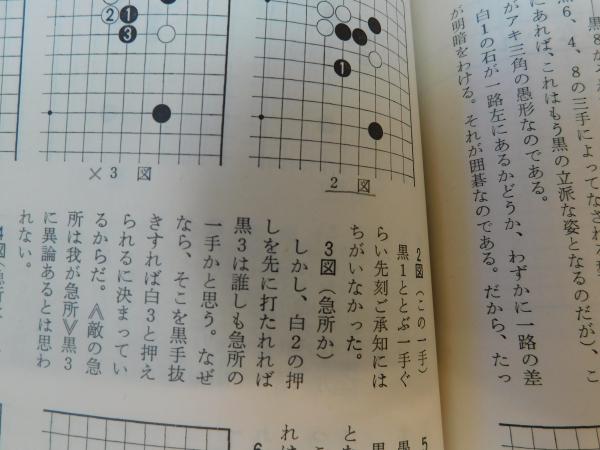 黒6、4、8の三手によってなされ
にあれば、これはもう黒の立派な姿となるのだが)、こ
がアキ三角の愚形なのである。
白1の石が一路左にあるかどうか、わずかに一路の差
が明暗をわける。それが囲碁なのである。だから、たっ
2 図
×3 図
2図(この一手)
黒1ととぶ一手ぐ
らい先刻ご承知には
ちがいなかった。
3図(急所か)
しかし、白2の押
しを先に打たれれば
黒3は誰しも急所の
一手かと思う。なぜ
なら、そこを黒手抜
きすれば白3と押え
られるに決まってい
るからだ。≪敵の急
所は我が急所≫黒3
に異論あるとは思わ
れない。